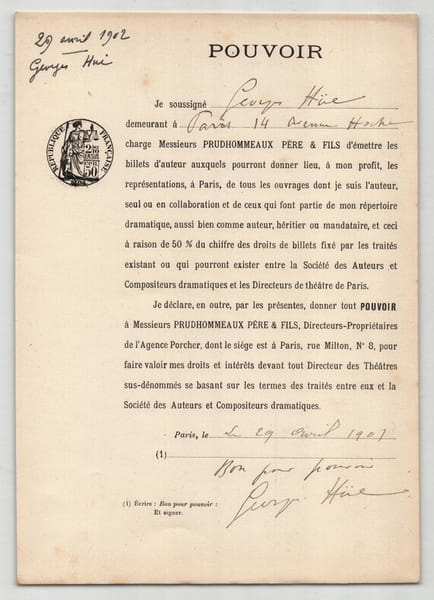 29 avril 1902
Georges Hüe
POUVOIR
Je soussigné Georges Hüe
demeurant à Paris 14 Avenue Hoche
charge Messieurs PRUDHOMMEAUX PÈRE & FILS d'émettre les
billets d'auteur auxquels pourront donner lieu, à mon profit, les
représentations, à Paris, de tous les ouvrages dont je suis l'auteur,
seul ou en collaboration et de ceux qui font partie de mon répertoire
dramatique, aussi bien comme auteur, héritier ou mandataire, et ceci
à raison de 50 % du chiffre des droits de billets fixé par les traités
existant ou qui pourront exister entre la Société des Auteurs et
Compositeurs dramatiques et les Directeurs de théâtre de Paris.
RÉPUBLIQUE FRANÇAISE
50
Je déclare, en outre, par les présentes, donner tout POUVOIR
à Messieurs PRUDHOMMEAUX PÈRE & FILS, Directeurs-Propriétaires
de l'Agence Porcher, dont le siège est à Paris, rue Milton, N° 8, pour
faire valoir mes droits et intérêts devant tout Directeur des Théâtres
sus-dénommés se basant sur les termes des traités entre eux et la
Société des Auteurs et Compositeurs dramatiques.
Paris, le Le 29 avril 1902
(1)
Bon pour pouvoir
Georges Hüe
(1) Écrire : Bon pour pouvoir :
Et signer.